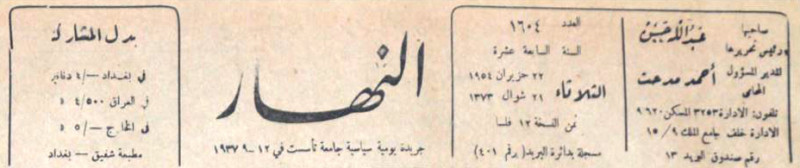 صاحبها
ورئيس تحريرها
عبد الله حسن
المدير المسؤول
أحمد مدحت
المحامي
تلفون: الادارة ٣٢٥٣ المسكن ٩٦٢٠
الادارة خلف جامع الملك ١٥/٩
رقم صندوق البريد ١٣
العدد ١٦٠٤
السنة السابعة عشرة
الثلاثاء
٢٢ حزيران ١٩٥٤
٢١ شوال ١٣٧٣
ثمن النسخة ١٢ فلسا
مسجلة بدائرة البريد (برقم ٤٠١)
النهار
جريدة يومية سياسية جامعة تأسست في ١٢-٩-١٩٣٧
بدل المشاركة
في بغداد -/٤ دنانير
في العراق ٤/٥٠٠ د
في الخارج -/٥ د
مطبعة شفيق - بغداد